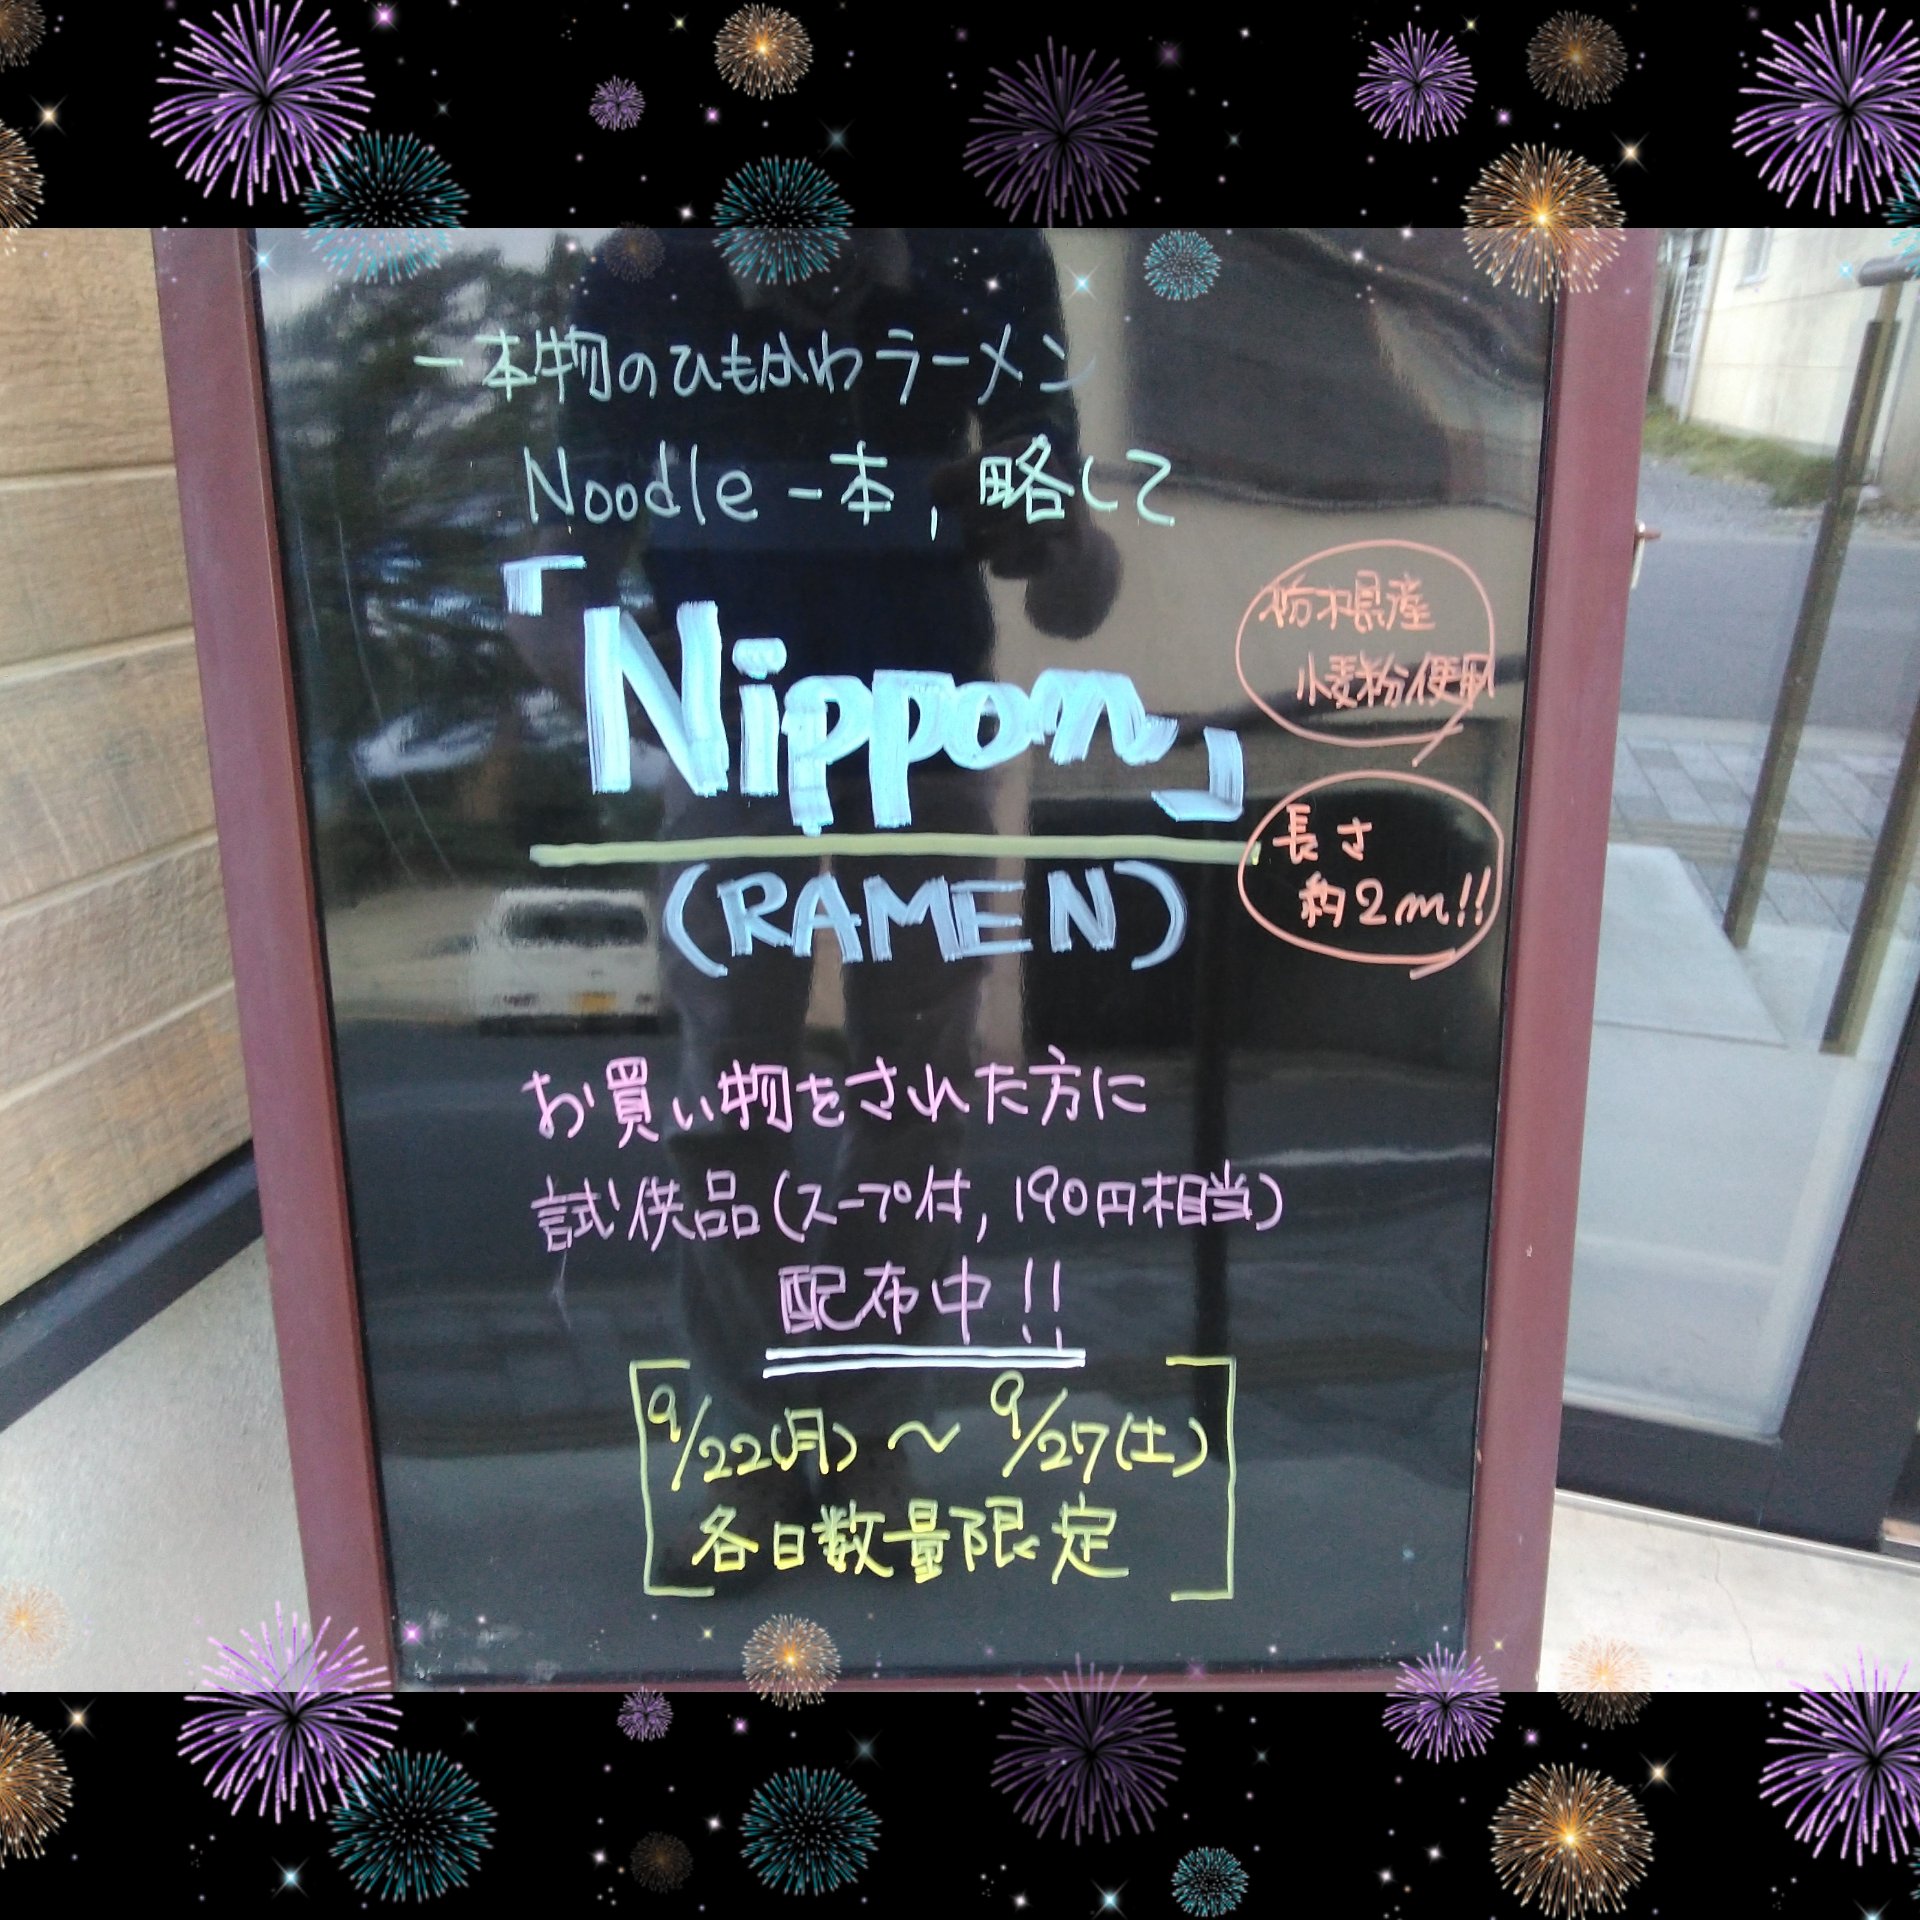 一本物のひもかわラーメン
Noodle一本,略して
「Nippon」
(RAMEN)
栃木県産
小麦粉使用
長さ
約2m!!
お買い物をされた方に
試供品(スープ付,190円相当)
配布中!!
9/22(月)～9/27(土)
各日数量限定